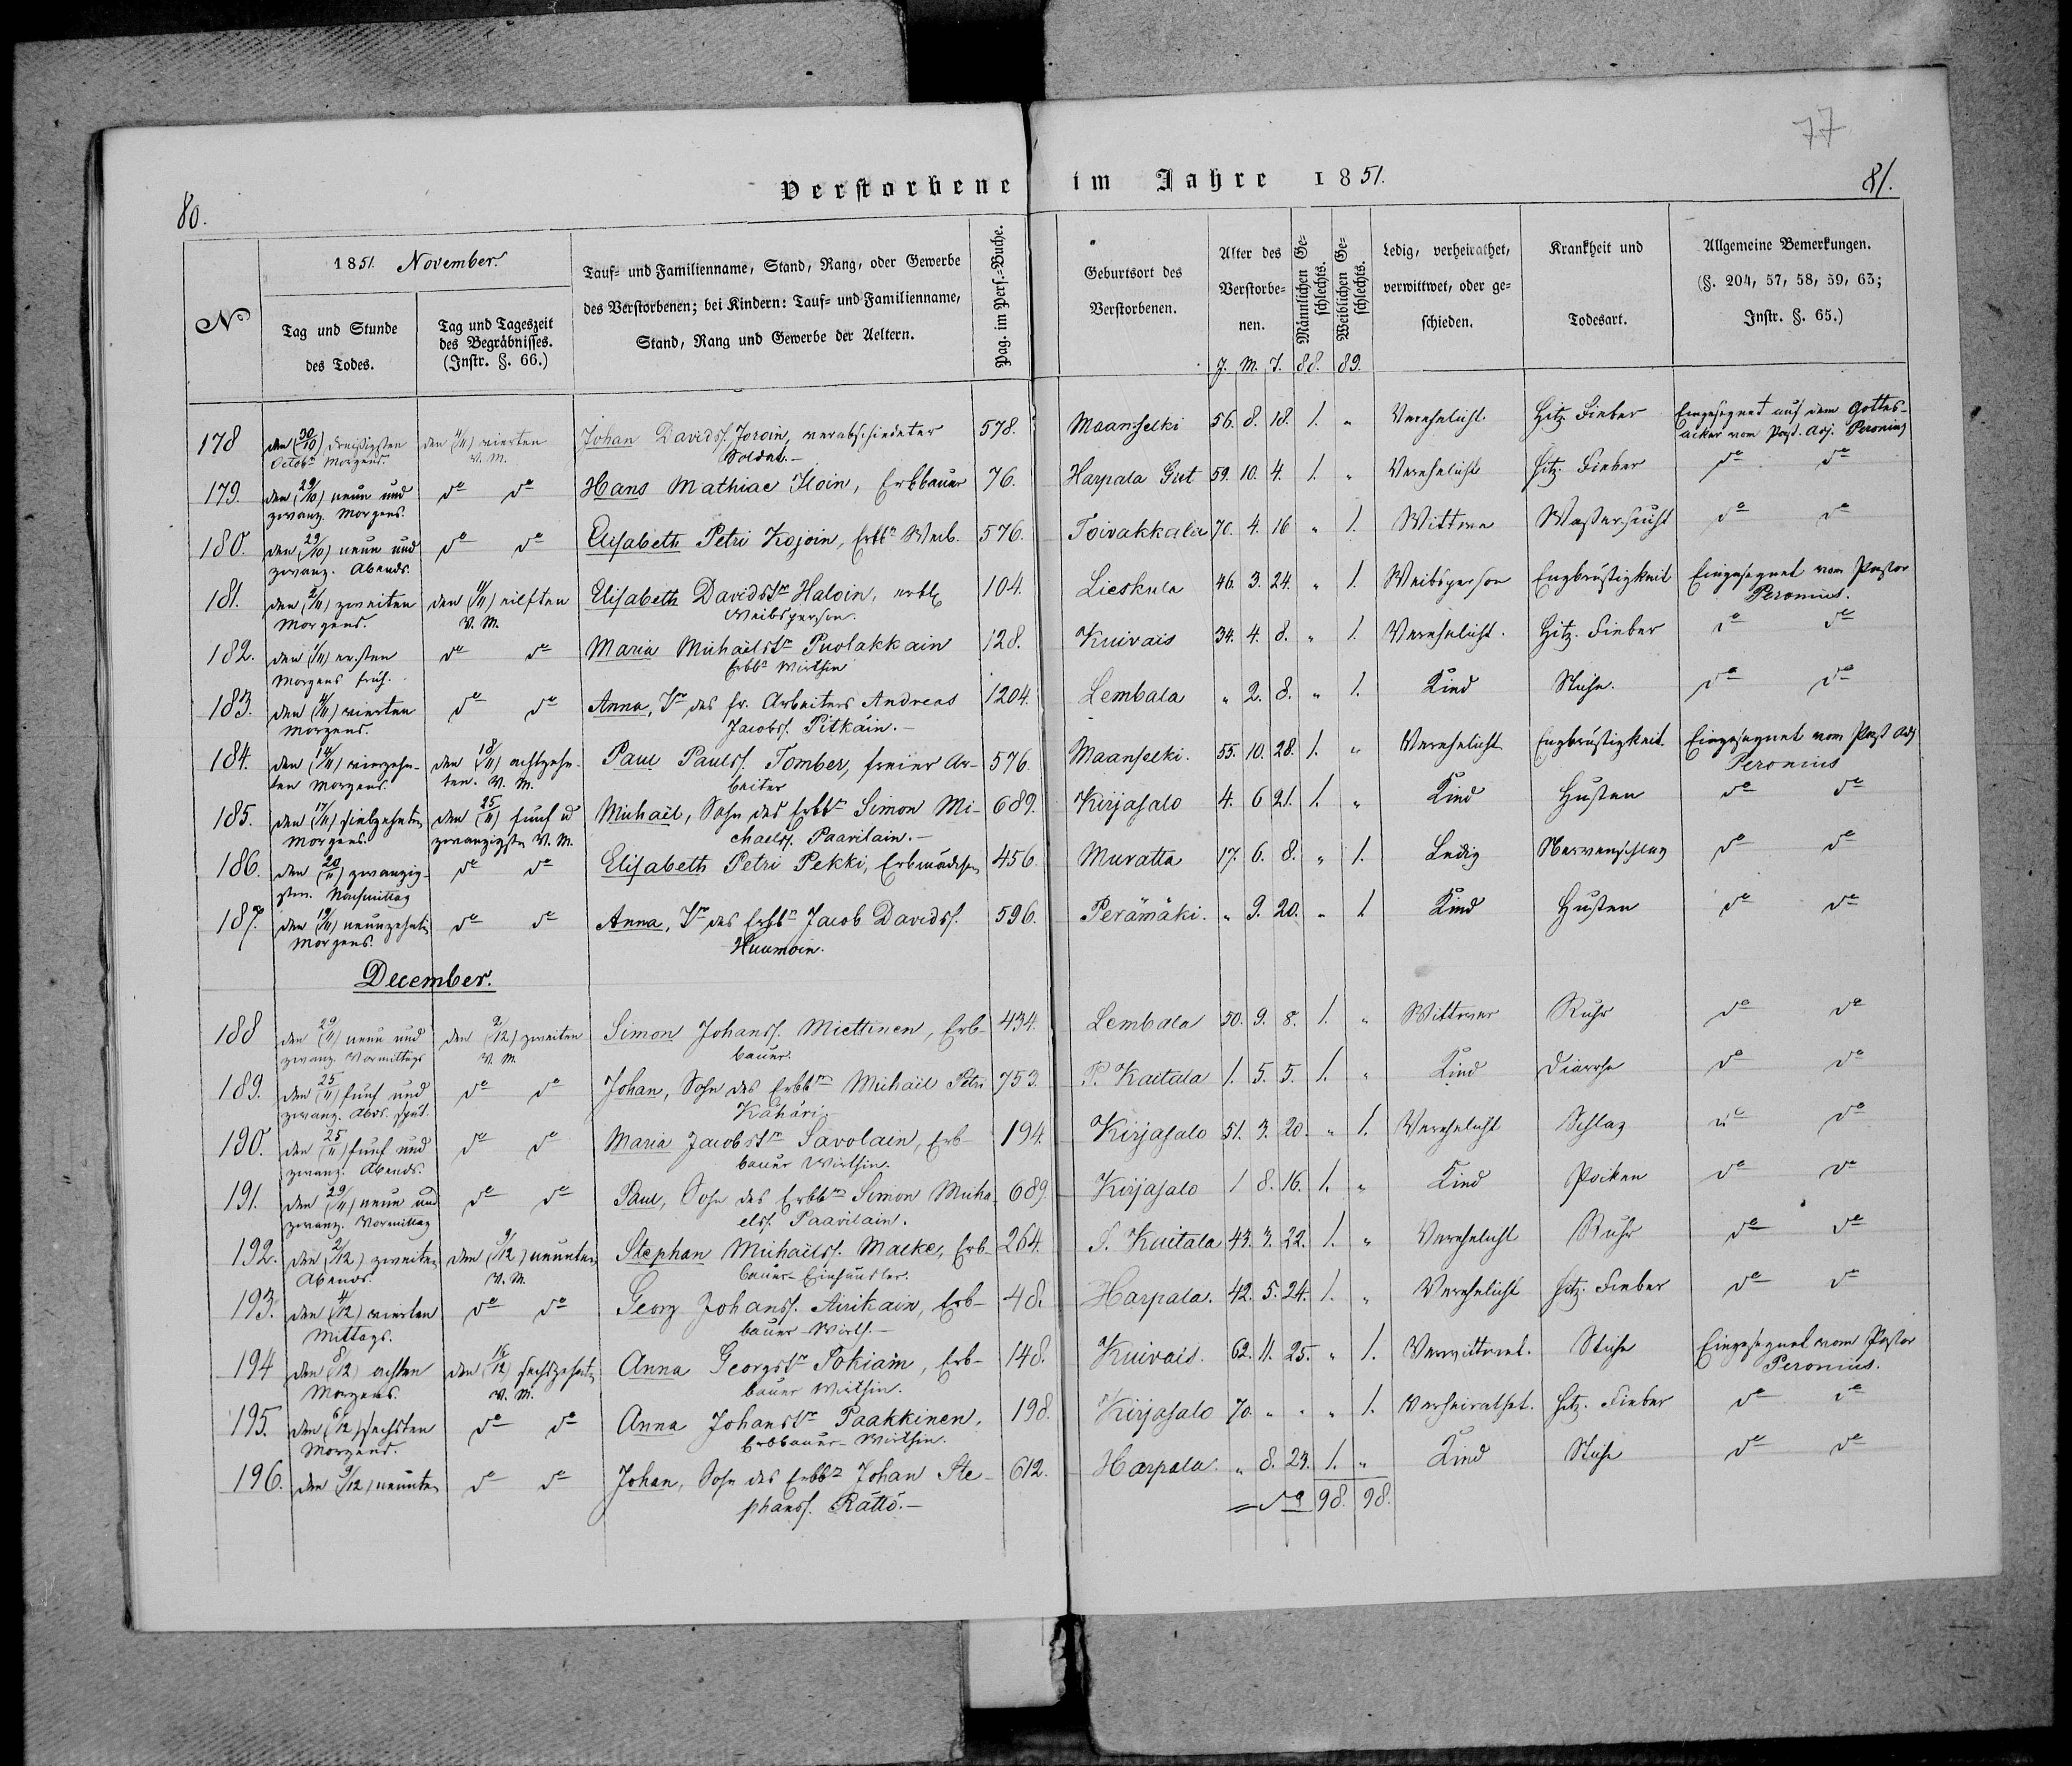 77
80.
Verstorbene im Jahre 1851.
81.
№
1851. November.
Tag und Stunde des Todes.
Tag und Tageszeit des Begräbnisses. (Instr. §. 66.)
Tauf- und Familienname, Stand, Rang, oder Gewerbe des Verstorbenen; bei Kindern: Tauf- und Familienname, Stand, Rang und Gewerbe der Aeltern.
Pag. im Pers.-Buche.
Geburtsort des Verstorbenen.
Alter des Verstorbenen.
J. M. T.
Männlichen Geschlechts.
88.
Weiblichen Geschlechts.
89.
Ledig, verheirathet, verwittwet, oder geschieden.
Krankheit und Todesart.
Allgemeine Bemerkungen. (§. 204, 57, 58, 59, 63; Instr. §. 65.)
178 den (30/10) dreißigsten den (4/11) vierten Johan Davidss. Joroin, verabschiedeter 578. Maanselki 56. 8. 18. 1. „ Verehelicht. Hitz. Fieber Eingesegnet auf dem Gottes-
Octobr Morgens. V. M. Soldat.- acker vom Past. Adj. Peronius
179. den (29/10) neun und do do Hans Mathiae Iloin, Erbbauer 76. Harpala Gut 59. 10. 4. 1. „ Verehelicht Hitz. Fieber do do
zwanz. Morgens.
180. den (29/10) neun und do do Elisabeth Petri Kojoin, Erbbr Weib. 576. Toivakkala 70. 4. 16 „ 1. Wittwe Wassersucht do do
zwanz. Abends.
181. den (2/11) zweiten den (11/11) eilften Elisabeth Davidstr Haloin, erbl. 104. Lieskula 46. 3. 24. „ 1. Weibsperson Engbrüstigkeit Eingesegnet vom Pastor
Morgens. V. M. Weibsperson. Peronius.
182. den (1/11) ersten do do Maria Michaëlstr Puolakkain 128. Kuivais 34. 4. 8. „ 1. Verehelicht. Hitz. Fieber do do
Morgens früh. Erbbr Wirthin
183. den (4/11) vierten do do Anna, Tr des fr. Arbeiters Andreas 1204. Lembala „ 2. 8. „ 1. Kind Stiche. do do
Morgens. Jacobss. Pitkäin.-
184. den (14/11) vierzehn- den (18/11) achtzehn- Paul Paulss. Tomber, freier Ar- 576. Maanselki. 55. 10. 28. 1. „ Verehelicht Engbrüstigkeit. Eingesegnet vom Past Adj
ten Morgens. ten. V. M. beiter Peronius
185. den (17/11) siebzehnten den (25/11) fünf u Michaël, Sohn des Erbbr Simon Mi- 689. Kirjasalo 4. 6 21. 1. „ Kind Husten do do
Morgens. zwanzigsten V. M. chaelss. Paavilain.-
186. den (20/11) zwanzig- do do Elisabeth Petri Pekki, Erbmädchen 456. Muratta 17. 6. 8. „ 1. Ledig Nervenschlag do do
sten. Nachmittag
187. den (19/11) neunzehnten do do Anna, Tr des Erbbr Jacob Davidss. 596. Perämäki. „ 9. 20. „ 1 Kind Husten do do
Morgens. Huumoin.
December.
188 den (29/11) neun und den (2/12) zweiten Simon Johanss. Miettinen, Erb- 434. Lembala 50. 9. 8. 1. „ Wittwer Ruhr do do
zwanz. Vormittags V. M. bauer.
189. den (25/11) fünf und do do Johan, Sohn des Erbbrn Michaël Petri 753. P. Kaitala 1. 5. 5. 1. „ Kind Diarrhe do do
zwanz. Abds. spät. Kähäri.
190. den (25/11) fünf und do do Maria Jacobstr Savolain, Erb- 194. Kirjasalo 51. 3. 20. „ 1. Verehelicht Schlag do do
zwanz. Abends. bauer Wirthin.
191. den (29/11) neun und do do Paul, Sohn des Erbbrn Simon Micha- 689. Kirjasalo 1 8. 16. 1. „ Kind Pocken do do
zwanz. Vormittag elss. Paavilain.
192. den (2/12) zweiten den (9/12) neunten Stephan Michaëlss. Maeke, Erb- 264. Kuitala 43. 3. 22. 1. „ Verehelicht Ruhr do do
Abends. V. M. bauer-Einhändler.
193. den (4/12) vierten do do Georg Johanss. Airikain, Erb- 48. Harpala. 42. 5. 24. 1. „ Verehelicht Hitz. Fieber do do
Mittags. bauer-Wirth.-
194 den (8/12) achten den (16/12) sechszehnten Anna Georgstr Pokiain, Erb- 148. Kuivais. 62. 11. 25. „ 1. Verwittwet. Stiche Eingesegnet vom Pastor
Morgens. V. M. bauer Wirthin. Peronius.
195. den (6/12) sechsten do do Anna Johanstr Paakkinen, 198. Kirjasalo 70. „ „ „ 1. Verheirathet. Hitz. Fieber do do
Morgens. Erbbauer-Wirthin.
196. den (9/12) neunten do do Johan, Sohn des Erbbr Johan Ste- 612. Harpala. „ 8. 23. 1. „ Kind Stiche do do
phanss. Rättö.-
98. 98.